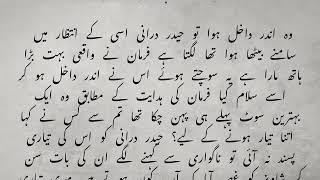 وہ اندر داخل ہوا تو حیدر درانی اسی کے انتظار میں
سامنے بیٹھا ہوا تھا لگتا ہے فرمان نے واقعی بہت بڑا
ہاتھ مارا ہے یہ سوچتے ہوئے اس نے اندر داخل ہو کر
اسے سلام کیا فرمان کی ہدایت کے مطابق وہ ایک
بہترین سوٹ پہلے ہی پہن چکا تھا تم سے کس نے کہا
اتنا تیار ہونے کے لیے؟ حیدر درانی کو اس کی تیاری
پسند نہ آئی تو ناگواری سے کہنے لگے ان کی بات سن